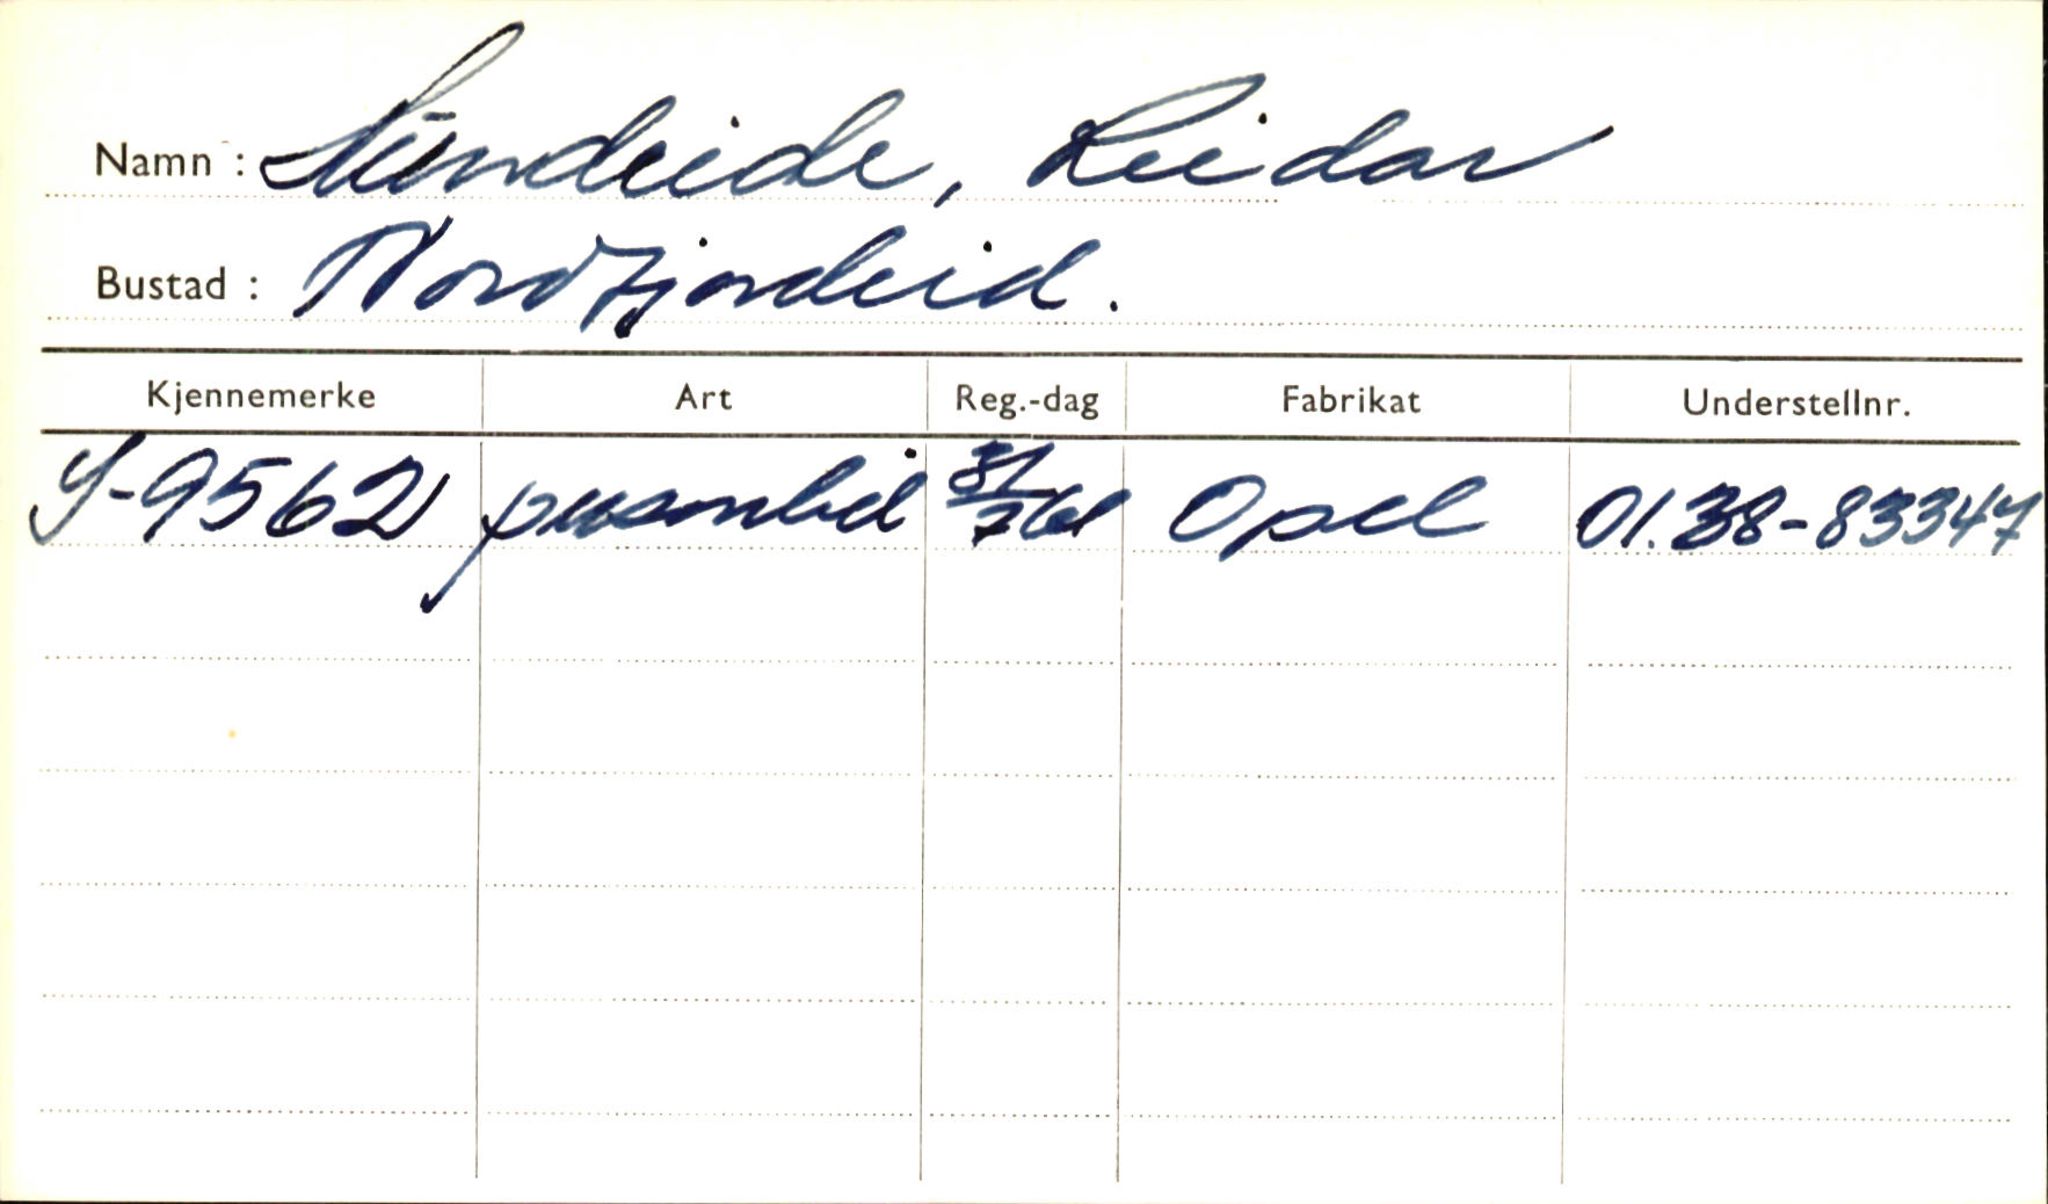 Namn : Sundeide, Leidar
Bustad : Nordfjordeid.
Kjennemerke Art Reg.-dag Fabrikat Understellnr.
S-9562 personbil Opel 01.38-83347